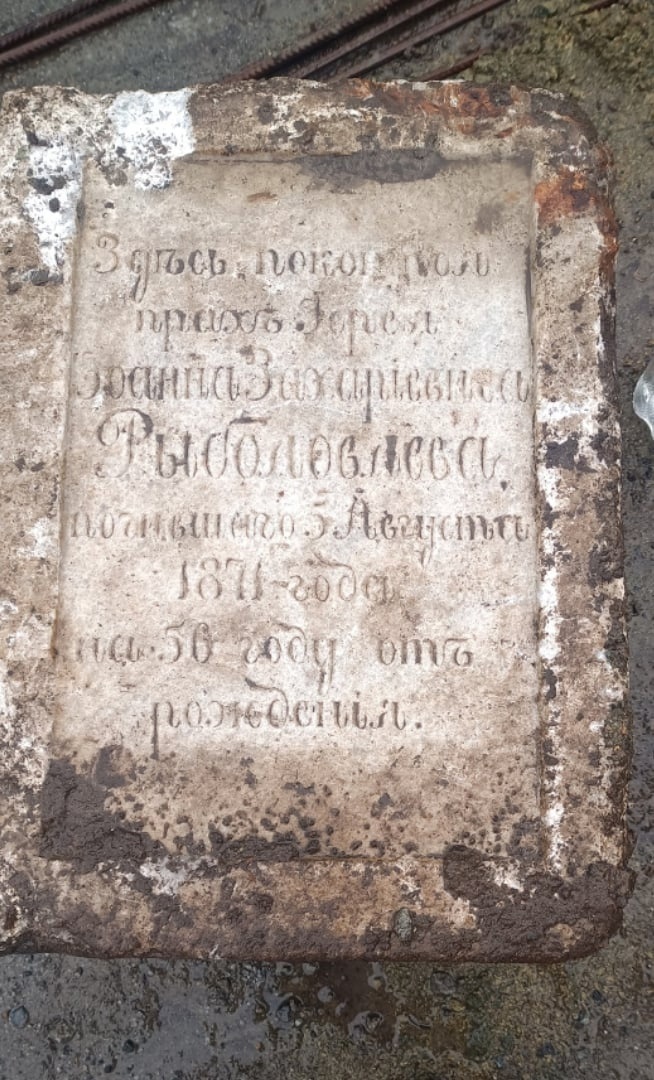 Здѣсь покоится
прахъ Іерея
Іоанна Захаріевича
Рыболовлева
почившаго 5 Августа
1871 года
на 56 году отъ
рожденія.